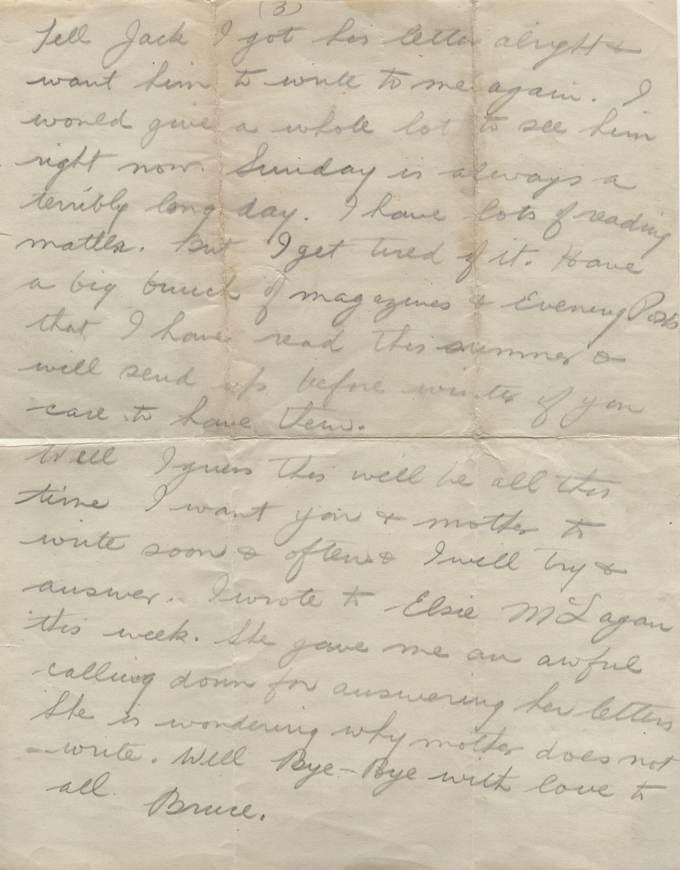 (3)
Tell Jack I got his letter alright &
want him to write to me again. I
would give a whole lot to see him
right now. Sunday is always a
terribly long day. I have lots of reading
matter. But I get tired of it. Have
a big bunch of magazines & Evening Posts
that I have read this summer &
will send up before winter if you
care to have them.
Well I guess this will be all this
time I want you & mother to
write soon & often & I will try &
answer. I wrote to Elsie McLagan
this week. She gave me an awful
calling down for answering her letters
She is wondering why mother does not
write. Well Bye-Bye with love to
all. Bruce.